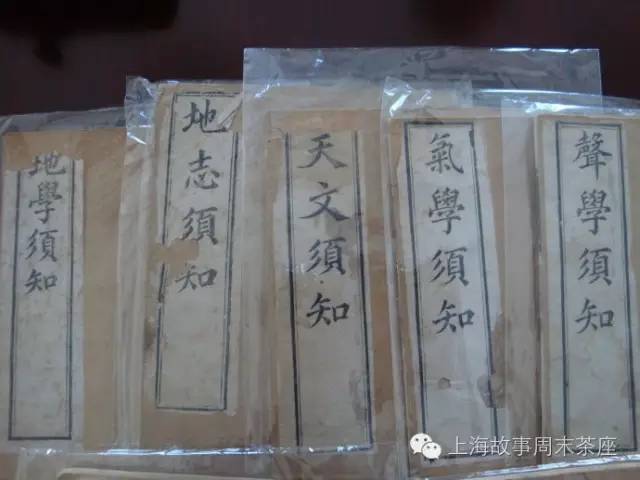 地學須知
地志須知
天文須知
氣學須知
聲學須知
上海故事周末茶座